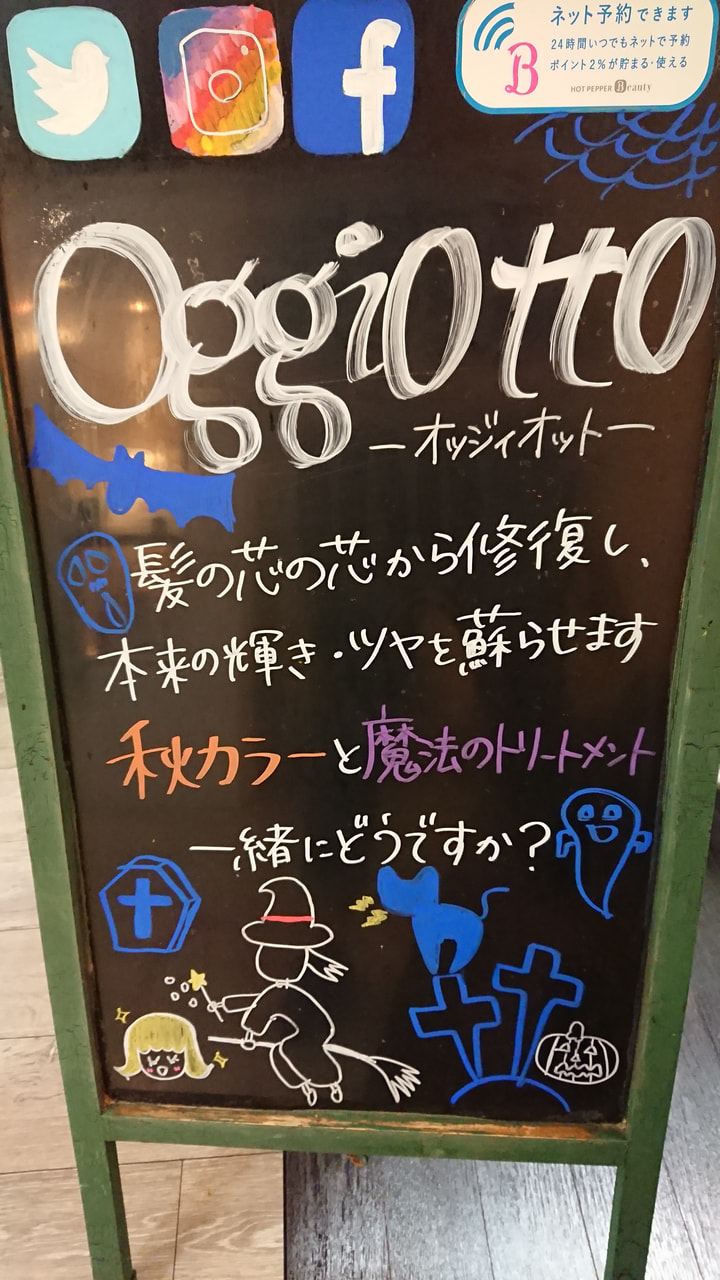 ネット予約できます
24時間いつでもネットで予約
ポイント2%が貯まる・使える
HOT PEPPER Beauty
Oggiotto
ーオッジィオットー
髪の芯の芯から修復し、
本来の輝き・ツヤを蘇らせます
秋カラーと魔法のトリートメント
一緒にどうですか?